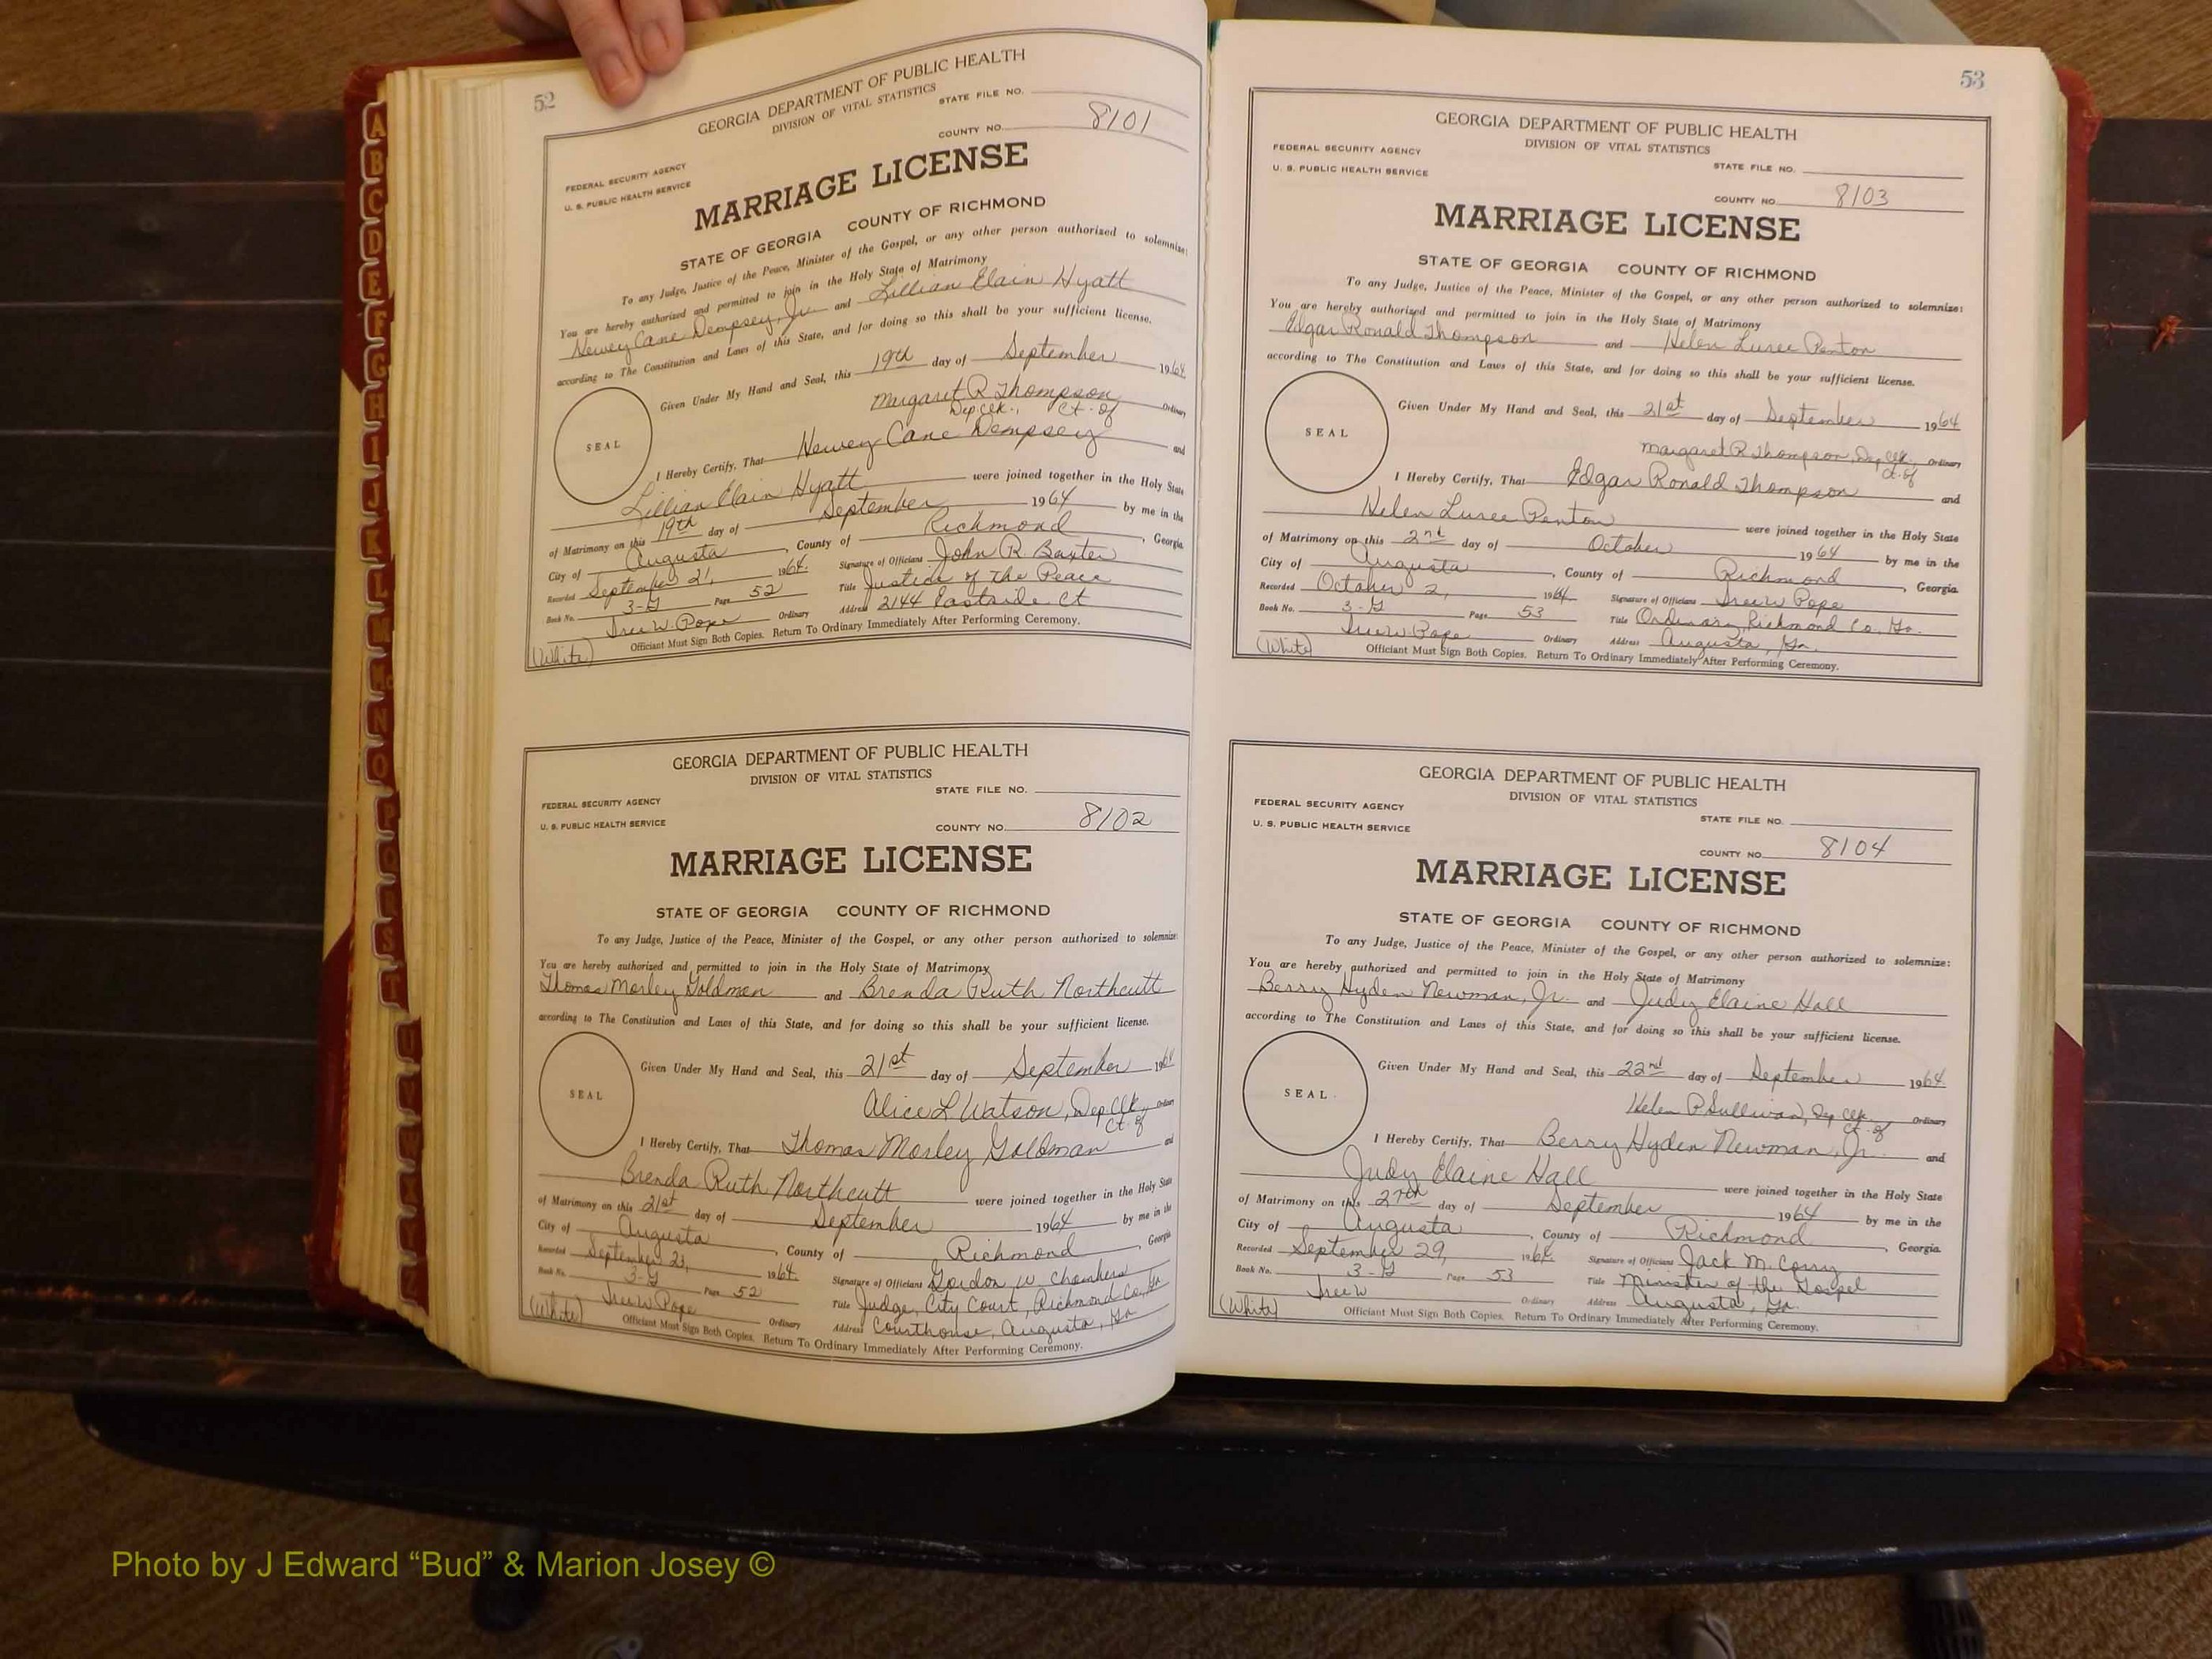 52
GEORGIA DEPARTMENT OF PUBLIC HEALTH
DIVISION OF VITAL STATISTICS
STATE FILE NO.
COUNTY NO. 8101
FEDERAL SECURITY AGENCY
U. S. PUBLIC HEALTH SERVICE
MARRIAGE LICENSE
STATE OF GEORGIA COUNTY OF RICHMOND
To any Judge, Justice of the Peace, Minister of the Gospel, or any other person authorized to solemnize:
You are hereby authorized and permitted to join in the Holy State of Matrimony
Newey Cane Dempsey, Jr. and Lillian Elain Hyatt
according to The Constitution and Laws of this State, and for doing so this shall be your sufficient license.
Given Under My Hand and Seal, this 19th day of September 1964
SEAL
Margaret R Thompson Ordinary
Dep. Clk., Ct. of
I Hereby Certify, That Newey Cane Dempsey and
Lillian Elain Hyatt were joined together in the Holy State
of Matrimony on this 19th day of September 1964 by me in the
City of Augusta, County of Richmond, Georgia
Recorded September 21, 1964. Signature of Officiant John R. Baxter
Book No. 3-G Page 52 Title Justice of the Peace
W. Pope Ordinary Address 2144 Eastside Ct
(White) Officiant Must Sign Both Copies. Return To Ordinary Immediately After Performing Ceremony.
GEORGIA DEPARTMENT OF PUBLIC HEALTH
DIVISION OF VITAL STATISTICS
STATE FILE NO.
FEDERAL SECURITY AGENCY
U. S. PUBLIC HEALTH SERVICE
COUNTY NO. 8102
MARRIAGE LICENSE
STATE OF GEORGIA COUNTY OF RICHMOND
To any Judge, Justice of the Peace, Minister of the Gospel, or any other person authorized to solemnize
You are hereby authorized and permitted to join in the Holy State of Matrimony
Thomas Morley Goldman and Brenda Ruth Northcutt
according to The Constitution and Laws of this State, and for doing so this shall be your sufficient license.
Given Under My Hand and Seal, this 21st day of September 1964
SEAL
Alice L Watson, Dep. Clk., Ordinary
Ct. of
I Hereby Certify, That Thomas Morley Goldman and
Brenda Ruth Northcutt were joined together in the Holy State
of Matrimony on this 21st day of September 1964 by me in the
City of Augusta, County of Richmond, Georgia
Recorded September 21, 1964. Signature of Officiant Gordon W. Chambers
Book No. 3-G Page 52 Title Judge, City Court, Richmond Co., Ga
W. Pope Ordinary Address Courthouse, Augusta, Ga
(White) Officiant Must Sign Both Copies. Return To Ordinary Immediately After Performing Ceremony.
53
GEORGIA DEPARTMENT OF PUBLIC HEALTH
DIVISION OF VITAL STATISTICS
FEDERAL SECURITY AGENCY
U. S. PUBLIC HEALTH SERVICE
STATE FILE NO.
COUNTY NO. 8103
MARRIAGE LICENSE
STATE OF GEORGIA COUNTY OF RICHMOND
To any Judge, Justice of the Peace, Minister of the Gospel, or any other person authorized to solemnize:
You are hereby authorized and permitted to join in the Holy State of Matrimony
Edgar Ronald Thompson and Helen Luree Penton
according to The Constitution and Laws of this State, and for doing so this shall be your sufficient license.
Given Under My Hand and Seal, this 21st day of September 1964
SEAL
Margaret R Thompson, Dep. Clk., Ordinary
Ct. of
I Hereby Certify, That Edgar Ronald Thompson and
Helen Luree Penton were joined together in the Holy State
of Matrimony on this 2nd day of October 1964 by me in the
City of Augusta, County of Richmond, Georgia.
Recorded October 2, 1964. Signature of Officiant W Pope
Book No. 3-G Page 53 Title Ordinary, Richmond Co., Ga.
W Pope Ordinary Address Augusta, Ga.
(White) Officiant Must Sign Both Copies. Return To Ordinary Immediately After Performing Ceremony.
GEORGIA DEPARTMENT OF PUBLIC HEALTH
DIVISION OF VITAL STATISTICS
FEDERAL SECURITY AGENCY
U. S. PUBLIC HEALTH SERVICE
STATE FILE NO.
COUNTY NO. 8104
MARRIAGE LICENSE
STATE OF GEORGIA COUNTY OF RICHMOND
To any Judge, Justice of the Peace, Minister of the Gospel, or any other person authorized to solemnize:
You are hereby authorized and permitted to join in the Holy State of Matrimony
Berry Hyden Newman, Jr. and Judy Elaine Hall
according to The Constitution and Laws of this State, and for doing so this shall be your sufficient license.
Given Under My Hand and Seal, this 22nd day of September 1964.
SEAL
Helen P Sullivan, Dep. Clk., Ordinary
Ct. of
I Hereby Certify, That Berry Hyden Newman, Jr. and
Judy Elaine Hall were joined together in the Holy State
of Matrimony on this 27th day of September 1964 by me in the
City of Augusta, County of Richmond, Georgia.
Recorded September 29, 1964. Signature of Officiant Jack M. Corry
Book No. 3-G Page 53 Title Minister of the Gospel
W Ordinary Address Augusta, Ga.
(White) Officiant Must Sign Both Copies. Return To Ordinary Immediately After Performing Ceremony.
A
B
C
D
E
F
G
H
I
J
K
L
M
Mc
N
O
P
Q
R
S
T
Photo by J Edward “Bud” & Marion Josey ©